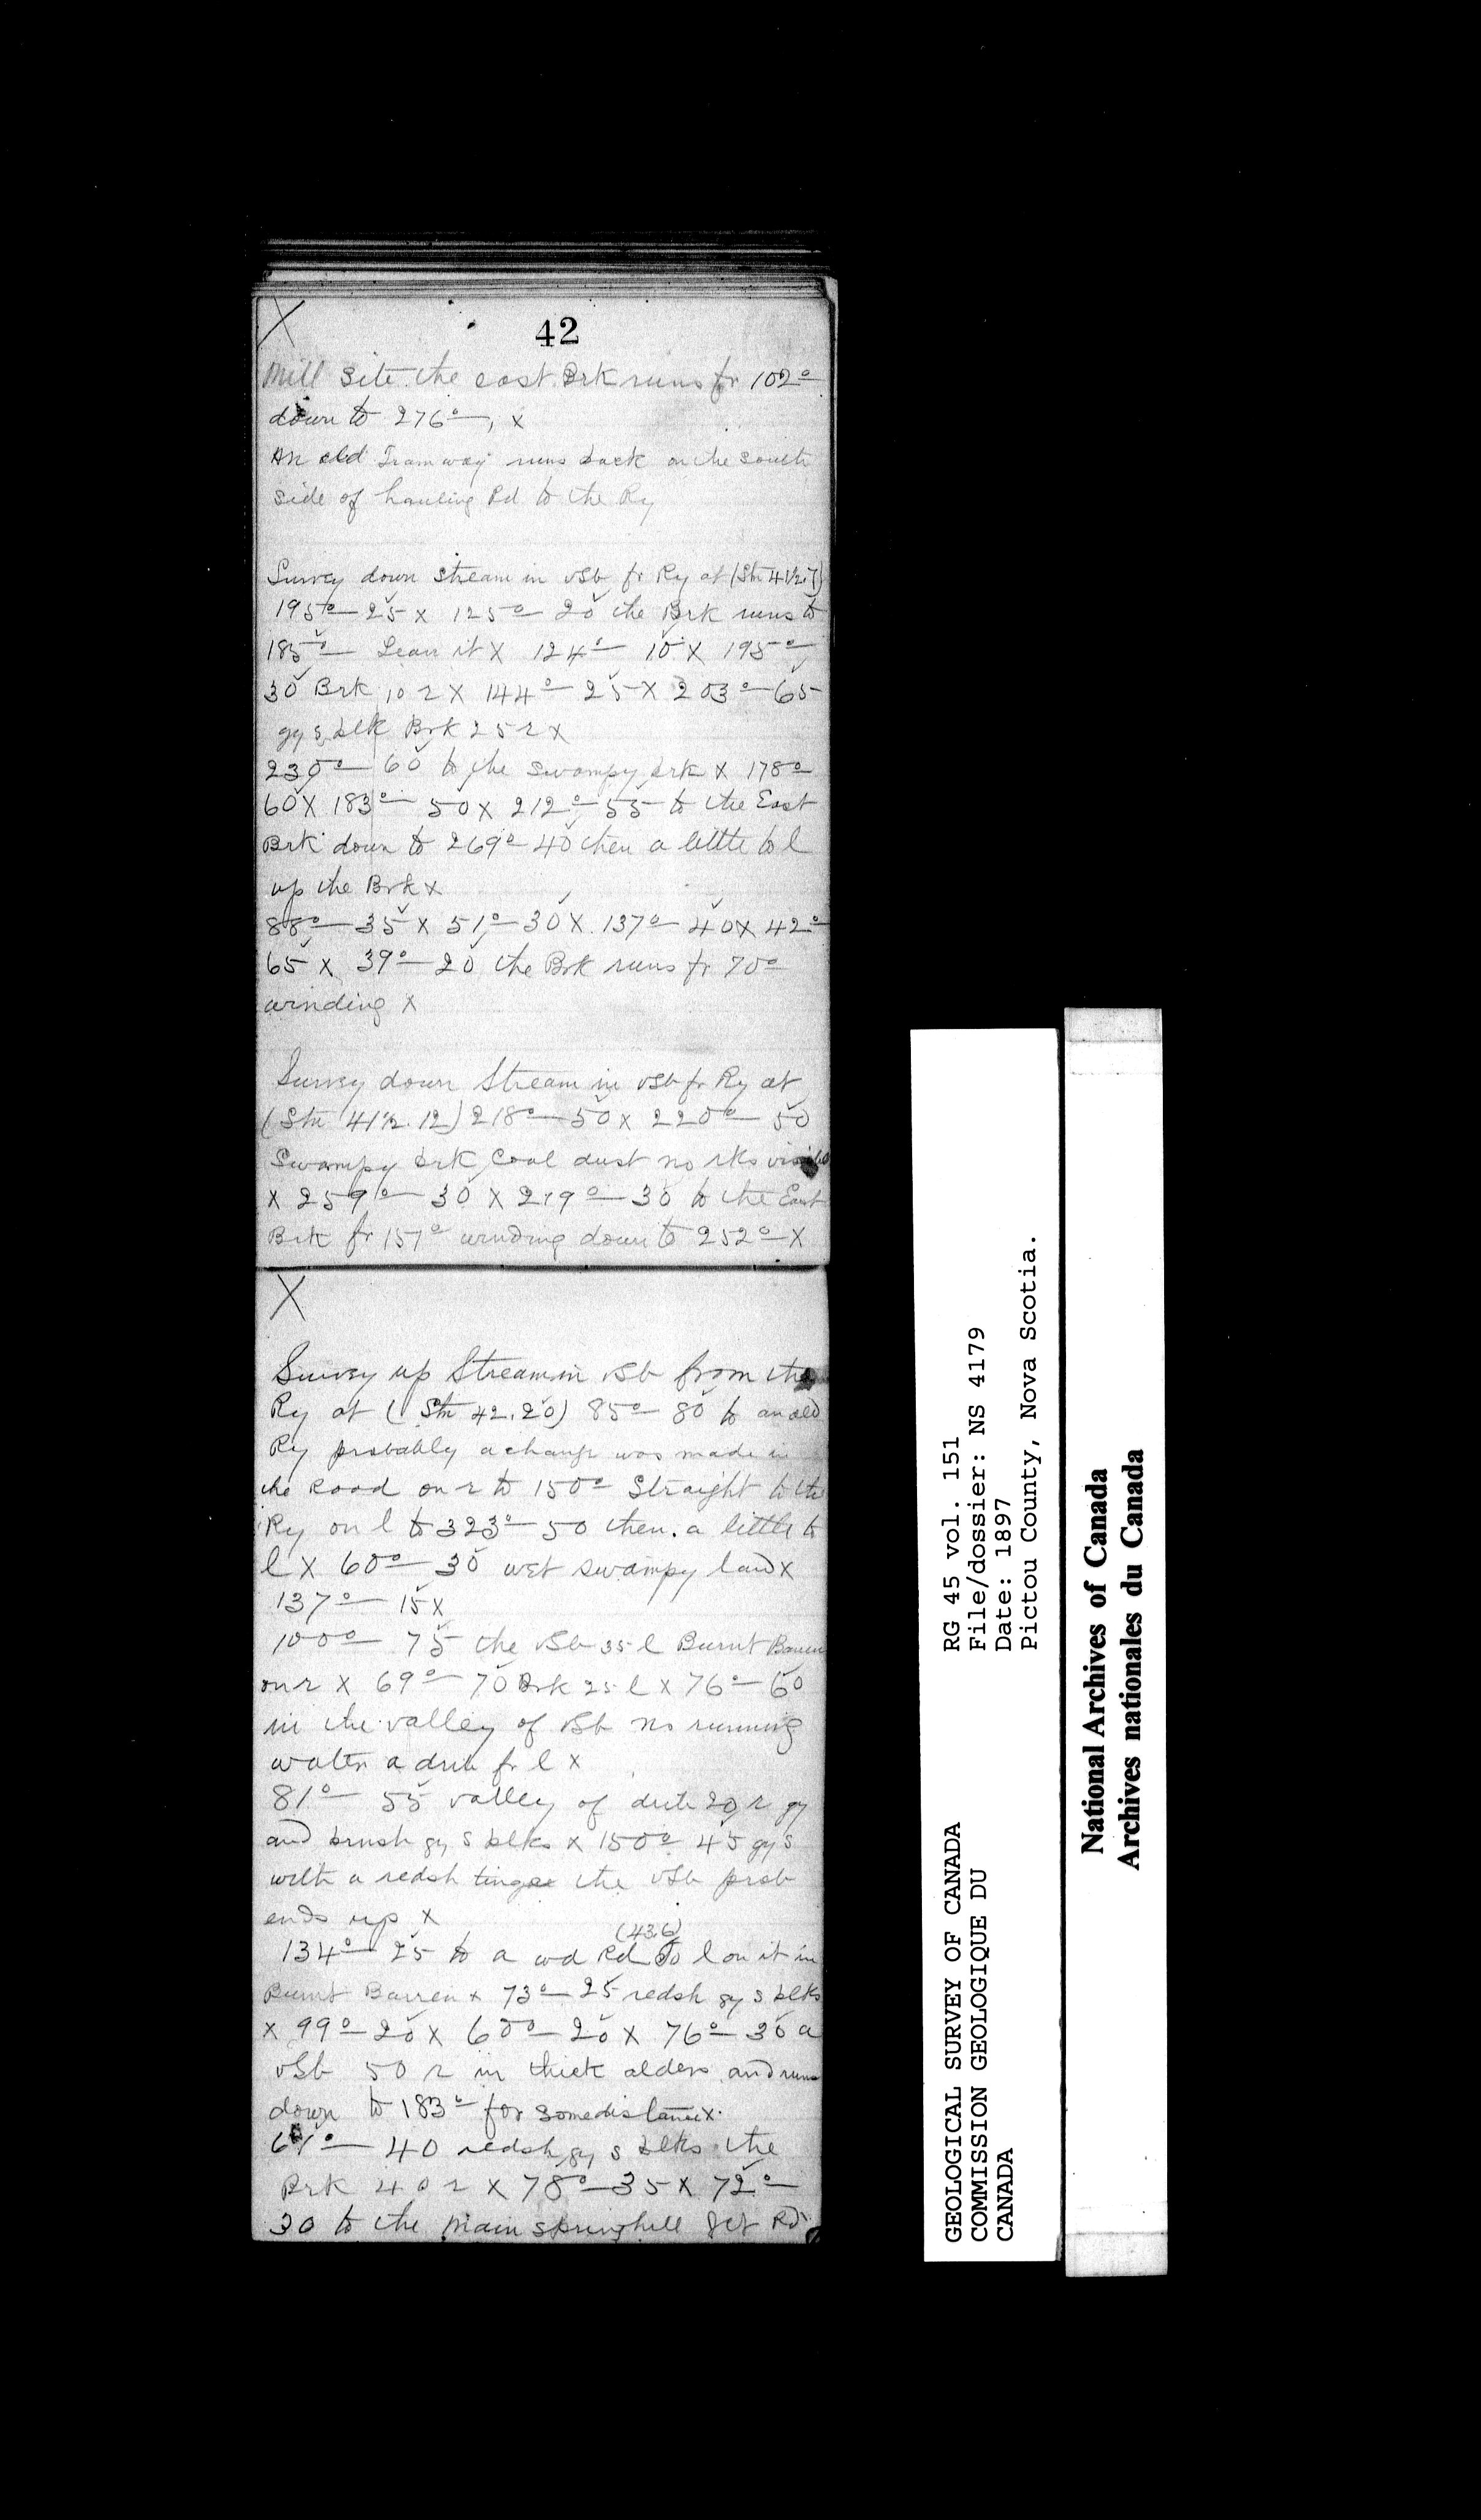 X
42
Mill site. the east Brk runs fr 102°
down to 276°, x
An old Tramway runs back on the south
side of hauling Rd to the Ry
Survey down stream in vSb fr Ry at (Stn 41½.7)
195° 25 x 125° 20 the Brk runs to
185° Leav it x 124° 10 x 195°
30 Brk 10 r x 144° 25 x 203° 65
gy s blk Brk 25 r x
230° 60 to the swampy brk x 178°
60 x 183° 50 x 212° 55 to the East
Brk down to 269° 40 then a little to l
up the Brk x
88° 35 x 51° 30 x 137° 40 x 42°
65 x 39° 20 the Brk runs fr 70°
winding x
Survey down Stream in vSb fr Ry at
(Stn 41½.12) 218° 50 x 220° 50
Swampy brk Coal dust no rks visible
x 259° 30 x 219° 30 to the East
Brk fr 157° winding down to 252° X
X
Survey up Stream in vSb from the
Ry at (Stn 42.20) 85° 80 to an old
Ry probably a change was made in
the Road on r to 150° Straight to the
Ry on l to 323° 50 then a little to
l x 60° 30 wet swampy land x
137° 15 x
100° 75 the vSb 35 l Burnt Barren
on r x 69° 70 Brk 25 l x 76° 60
in the valley of vSb no running
water a fr l x
81° 55 valley of 20 r gy
and brnsh gy s blks x 150° 45 gy s
with a redsh tinge the vSb prob
ends up x
(43.6)
134° 25 to a wd Rd To l on it in
Burnt Barren x 73° 25 redsh gy s blks
x 99° 20 x 60° 20 x 76° 30 a
vSb 50 r in thick alders and runs
down to 183° for some distance x
61° 40 redsh gy s blks the
Brk 40 r x 78° 35 x 72°
30 to the main Springhill Jct Rd
GEOLOGICAL SURVEY OF CANADA
COMMISSION GEOLOGIQUE DU
CANADA
RG 45 vol. 151
File/dossier: NS 4179
Date: 1897
Pictou County, Nova Scotia.
National Archives of Canada
Archives nationales du Canada